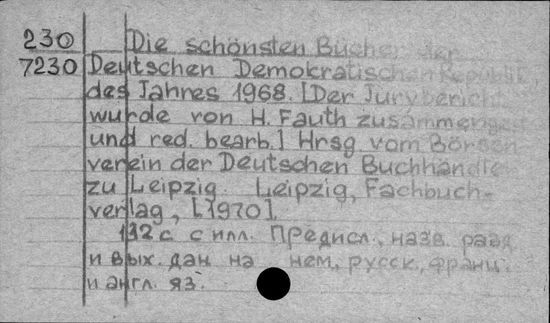 230 Die schönsten Bücher der
7230 Deutschen Demokratischen Republik
des Jahres 1968. [Der Jurybericht
wurde von H. Fauth zusammengest.
und red. bearb.] Hrsg vom Börsen
verein der Deutschen Buchhändle
zu Leipzig. Leipzig, Fachbuch-
verlag, [1970].
132 с. с илл. Предисл., назв. разд.
и вых. дан. на нем., русск., франц.
и англ. яз.